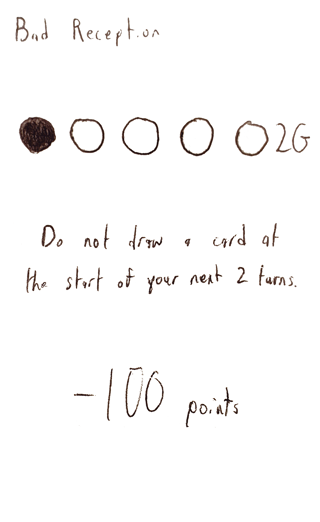 Bad Reception
2G
Do not draw a card at
the start of your next 2 turns.
-100 points